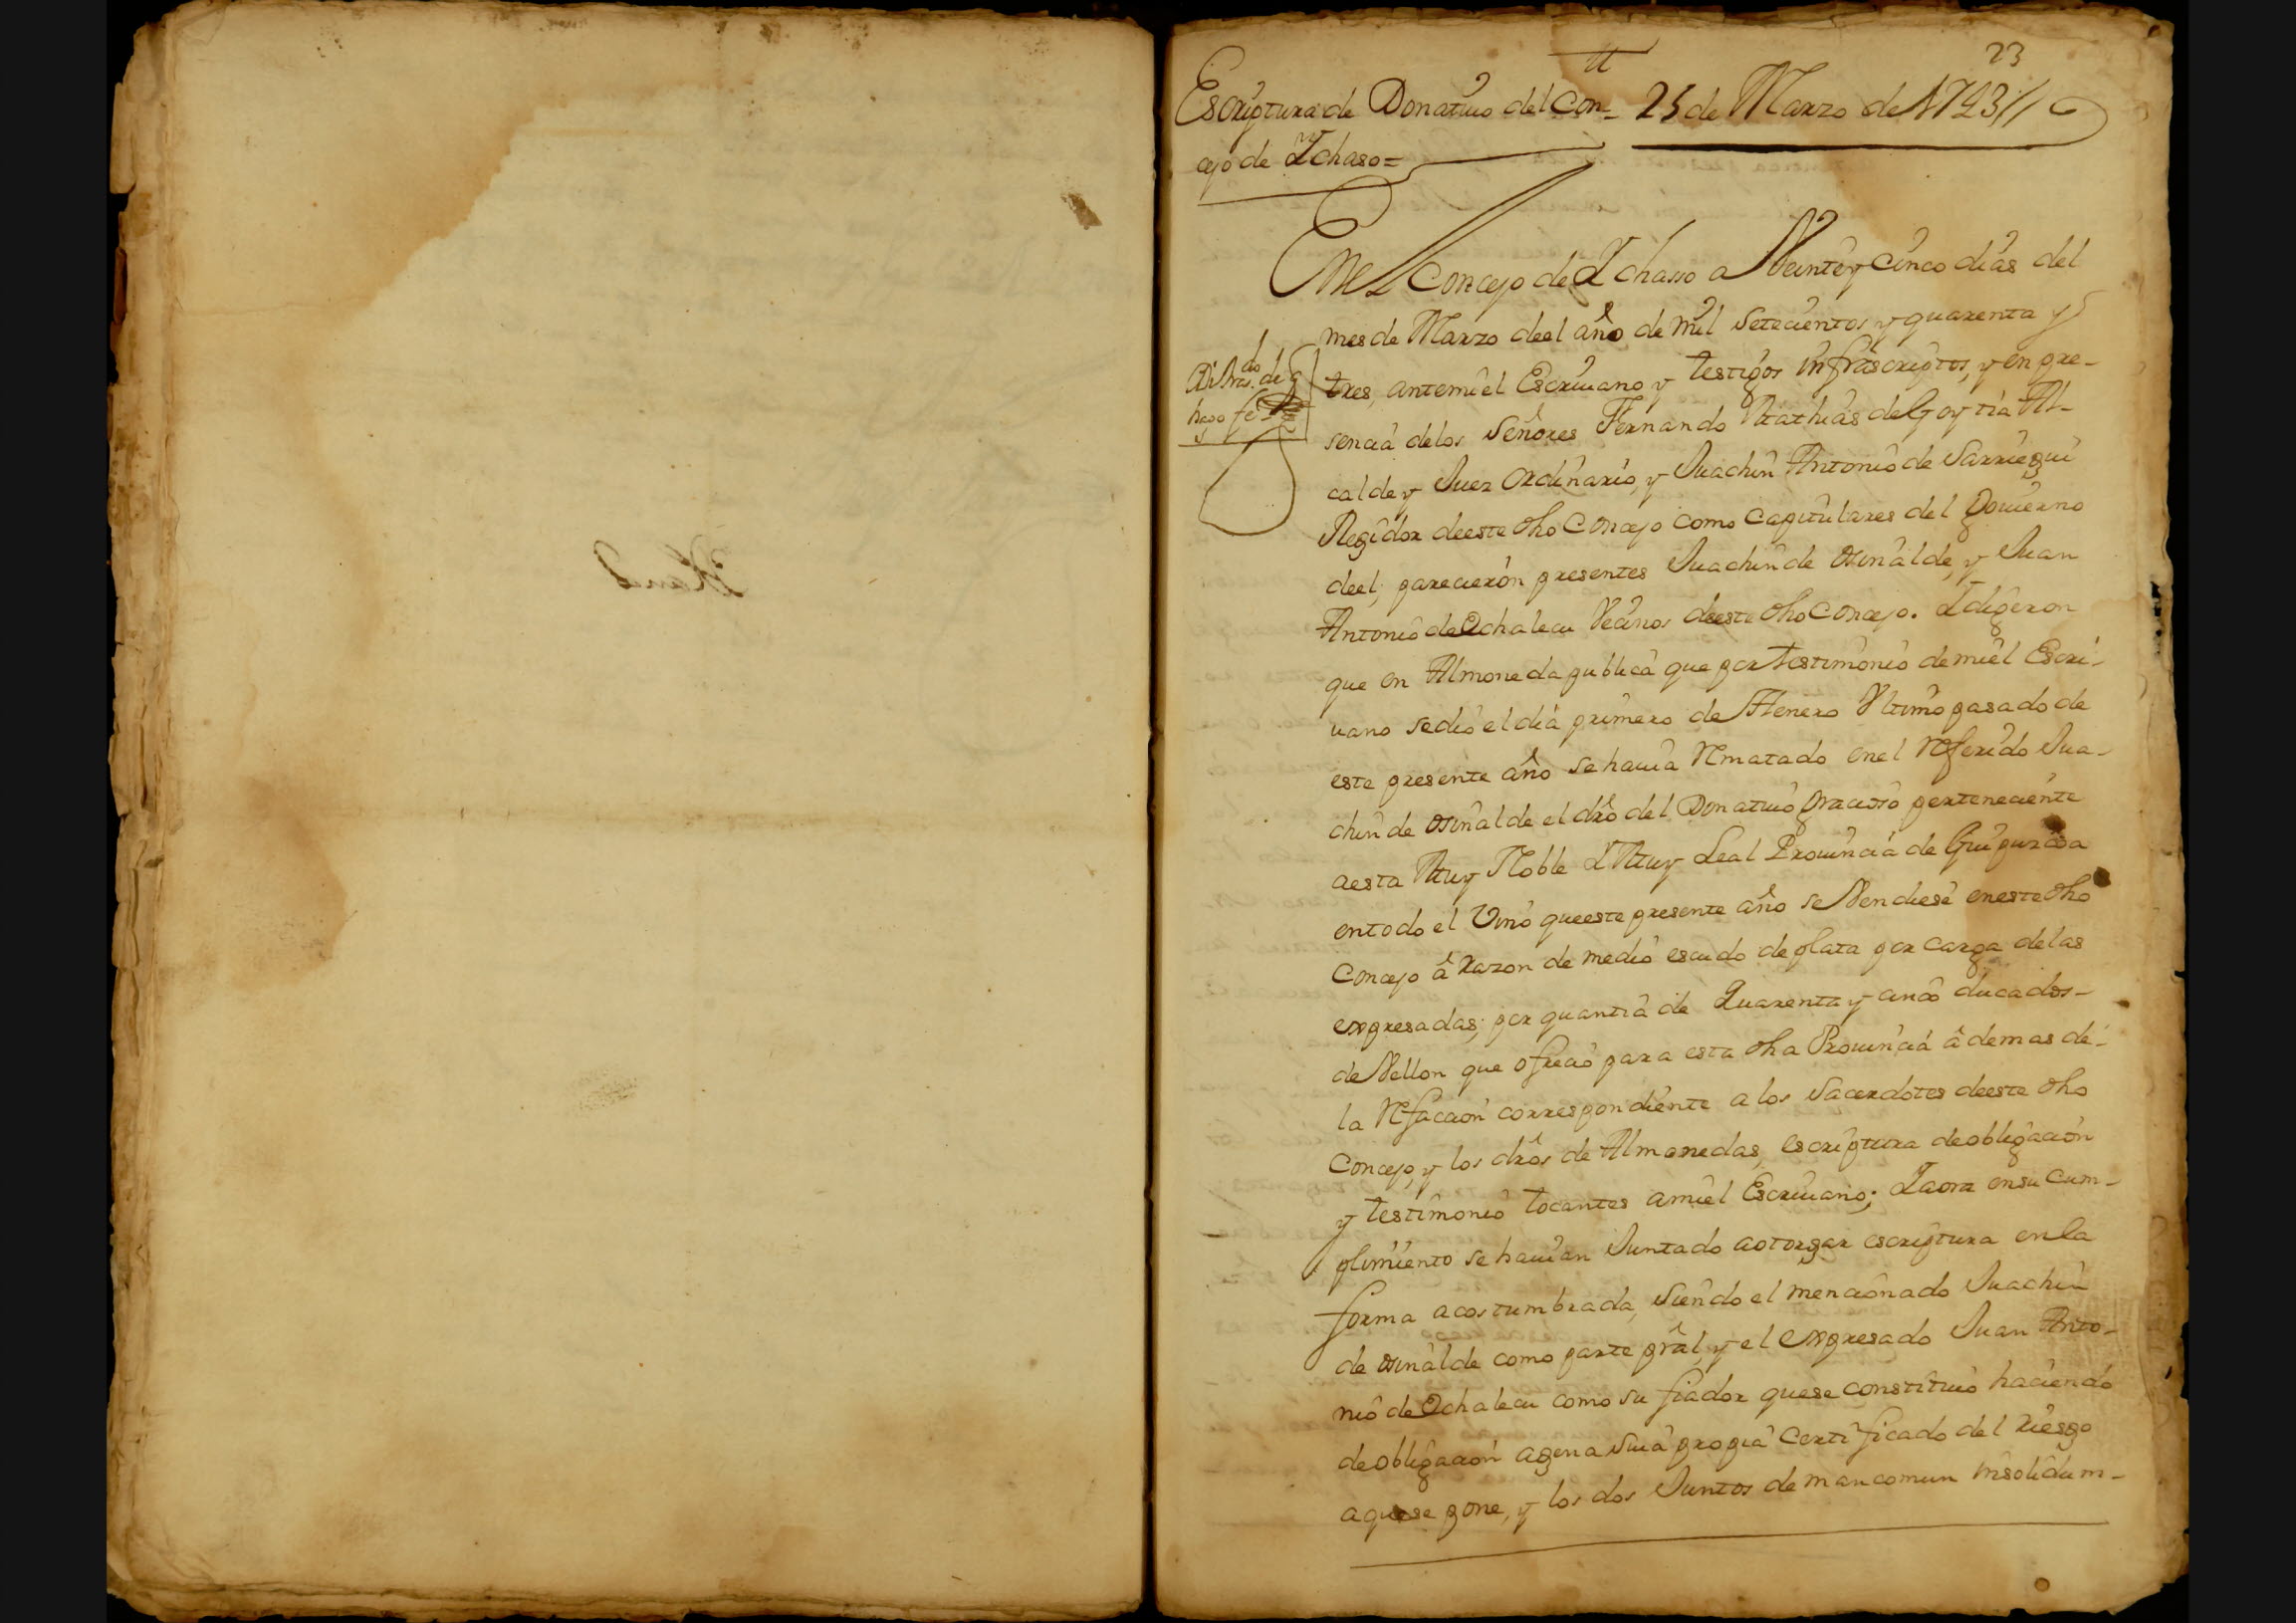 23
Escriptura de Donatiuo del Con= 25 de Marzo de 1743//
cejo de Ychaso=
En el Concejo de Ychasso a Veinte y cinco dias del
mes de Marzo de el año de mil Setecientos y quarenta y
tres, antemi el Escriuano y testigos infrascriptos, y en pre-
sencia delos Señores Fernando Mathias de Goytia Al-
calde y Juez Ordinario, y Juachin Antonio de Sarriegui
Regidor deeste dho Concejo como Capitulares del Gouierno
deel; parecieron presentes Juachin de Osinalde, y Juan
Antonio de Ochalecu Vecinos deeste dho Concejo. Y digeron
que en Almoneda publica que por testimonio de mi el Escri-
uano se dio el dia primero de Henero Vltimo pasado de
este presente año se hauia Rematado en el Referido Jua-
chin de Osinalde el dro del Donatiuo Gracioso perteneciente
a esta Muy Noble Y Muy Leal Prouincia de Guipuzcoa
en todo el Vino que este presente año se Vendiese en este dho
Concejo â razon de medio escudo de plata por carga delas
expresadas; por quantia de Quarenta y cinco ducados-
de Vellon que ofrecio para esta dha Prouincia â demas de-
la Refaccion correspondiente a los Sacerdotes deeste dho
Concejo, y los dros de Almonedas, escriptura de obligacion
y testimonio tocantes a mi el Escriuano; Y aora en su cum-
plimiento se hauian Juntado a otorgar escriptura en la
forma acostumbrada, Siendo el mencionado Juachin
de Osinalde como parte prâl, y el expresado Juan Anto-
nio de Ochalecu como su fiador que se constituio haciendo
de obligacion agena Suia propia Certificado del riesgo
a que se pone, y los dos Juntos de mancomun insolidum-
hago fe